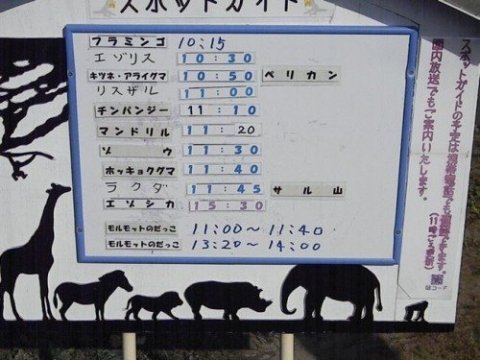 スポットガイド
フラミンゴ 10:15
エゾリス 10:30
キツネ・アライグマ 10:50 ペリカン
リスザル 11:00
チンパンジー 11:10
マンドリル 11:20
ゾウ 11:30
ホッキョクグマ 11:40
ラクダ 11:45 サル山
エゾシカ 15:30
モルモットのだっこ 11:00〜11:40
モルモットのだっこ 13:20〜14:00
スポットガイドの予定は
できます。
(11時ごろ更新)
園内放送でもご案内いたします。
QRコード